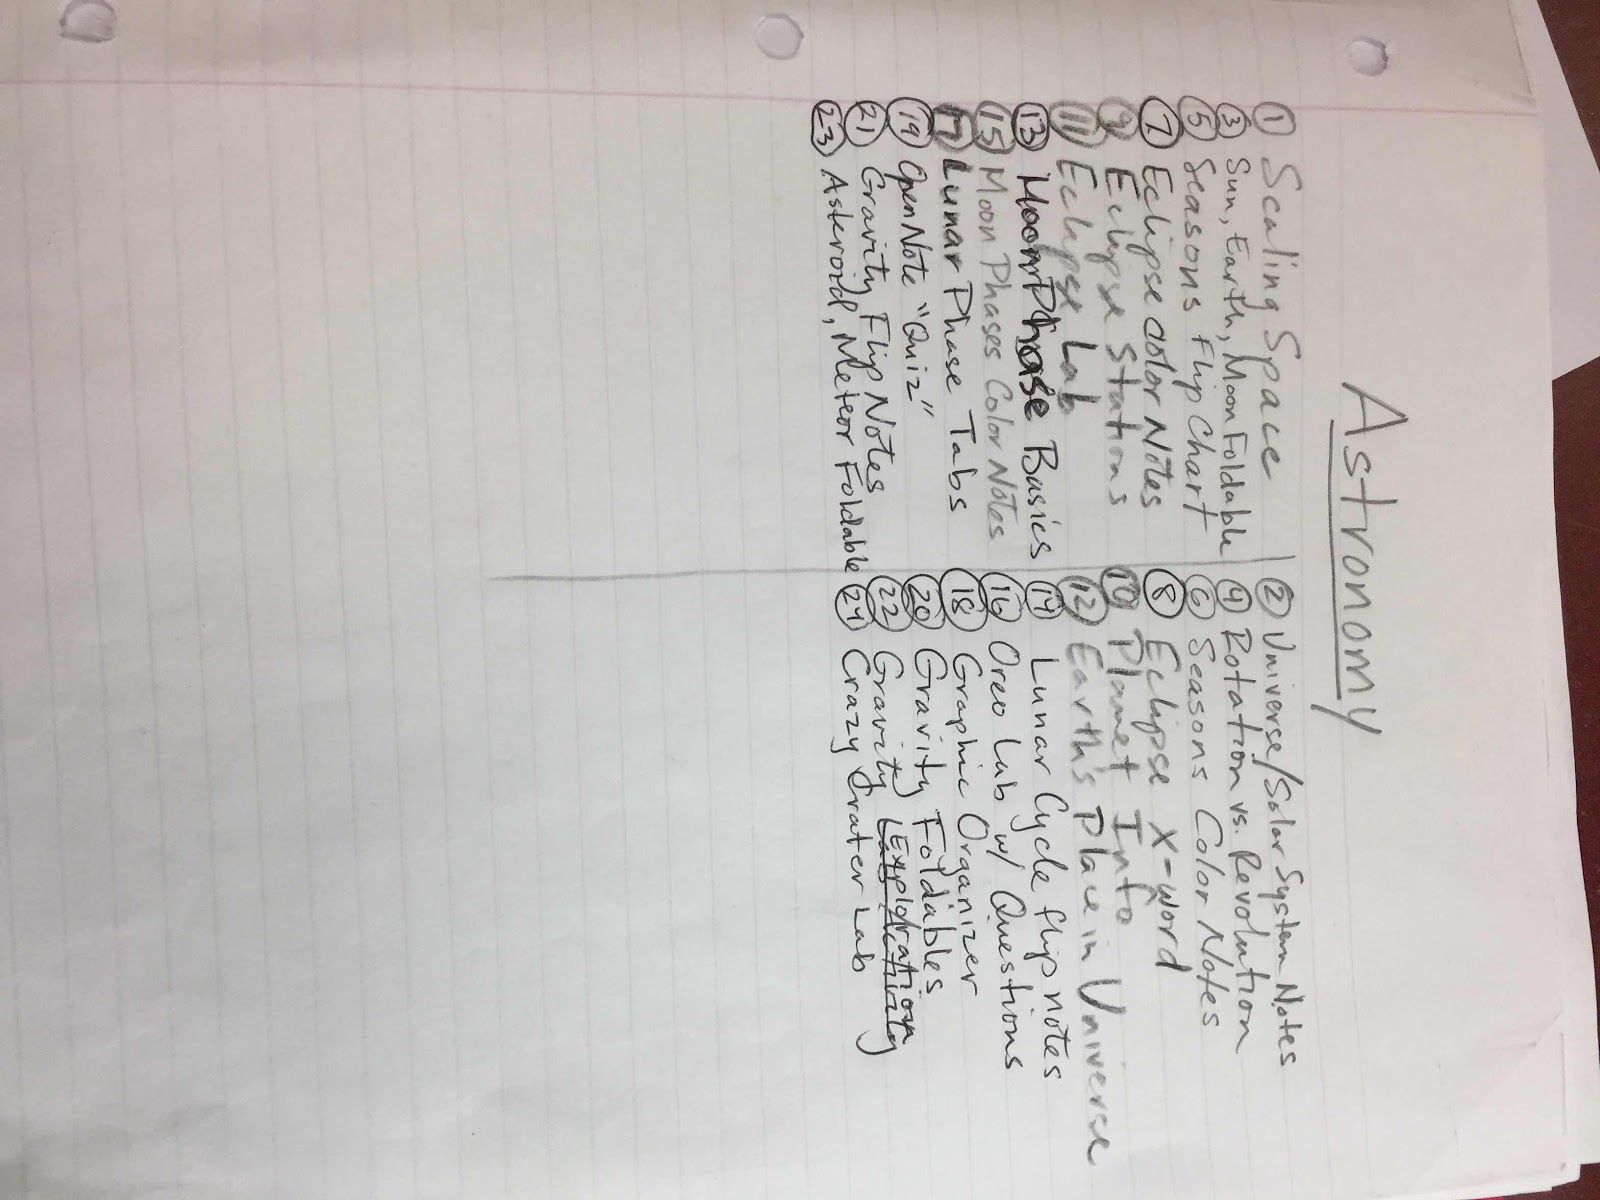 Astronomy
① Scaling Space
③ Sun, Earth, Moon Foldable
⑤ Seasons Flip Chart
⑦ Eclipse Color Notes
⑨ Eclipse Stations
⑪ Eclipse Lab
⑬ Moon Phase Basics
⑮ Moon Phases Color Notes
⑰ Lunar Phase Tabs
⑲ Open Note "Quiz"
㉑ Gravity Flip Notes
㉓ Asteroid, Meteor Foldable
② Universe/Solar System Notes
④ Rotation vs. Revolution
⑥ Seasons Color Notes
⑧ Eclipse X-word
⑩ Planet Info
⑫ Earth's Place in Universe
⑭ Lunar Cycle flip notes
⑯ Oreo Lab w/ Questions
⑱ Graphic Organizer
⑳ Gravity Foldables
㉒ Gravity Exploration
㉔ Crazy Crater Lab